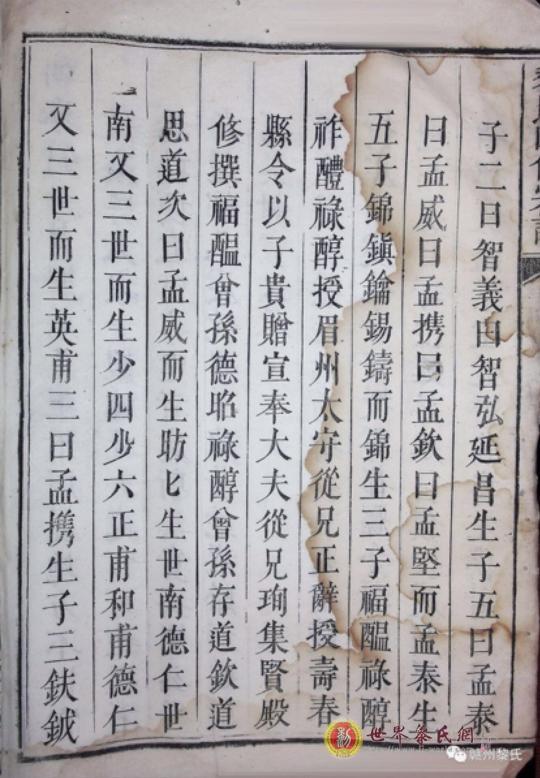 子二曰智義曰智弘延昌生子五曰孟泰
曰孟威曰孟携曰孟欽曰孟堅而孟泰生
五子錦鎮鑰錫鑄而錦生三子福醞祿醇
祚醴祿醇授眉州太守從兄正辭授壽春
縣令以子貴贈宣奉大夫從兄珣集賢殿
修撰福醞曾孫德昭祿醇曾孫存道欽道
思道次曰孟威而生昉匕生世南德仁世
南又三世而生少四少六正甫和甫德仁
又三世而生英甫三曰孟携生子三鈇鉞
世界黎氏網
赣州黎氏